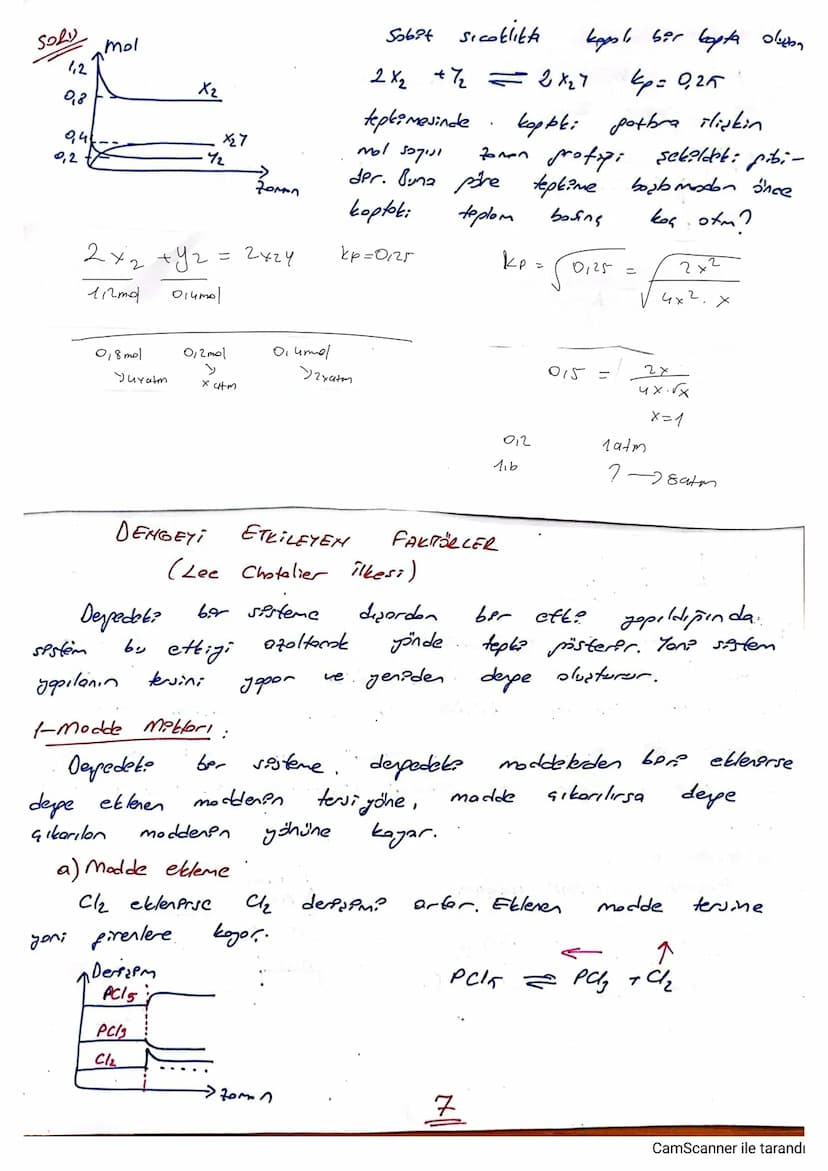 SORU
mol
1,2
0,8
X2
0,4
X2Y
0,2
Y2
zaman
Sabit sıcaklıkta kapalı bir kapta oluşan
2X2 + Y2 ⇌ 2X2Y kp= 0,25
tepkimesinde kaptaki gazlara ilişkin
mol sayısı zaman grafiği şekildeki gibi-
dir. Buna göre tepkime başlamadan önce
kaptaki toplam basınç kaç atm?
2X2 + Y2 = 2X2Y kp=0,25
1,2mol 0,4mol
0,8mol 0,2mol 0,4mol
↘4xatm ↘xatm ↘2xatm
kp = √0,25 = √(2x^2 / 4x^2 . x)
0,5 = 2x / 4x.√x
x=1
0,2 1atm
1,6 ? → 8atm
DENGEYİ ETKİLEYEN FAKTÖRLER
(Lee Chatelier İlkesi)
Dengedeki bir sisteme dışardan bir etki yapıldığında
sistem bu etkiyi azaltacak yönde tepki gösterir. Yani sistem
yapılanın tersini yapar ve yeniden denge oluşturur.
1-Madde Miktarı:
Dengedeki bir sisteme, dengedeki maddelerden biri eklenirse
denge eklenen maddenin tersi yöne, madde çıkarılırsa denge
çıkarılan maddenin yönüne kayar.
a) Madde ekleme
Cl2 eklenirse Cl2 derişimi artar. Eklenen madde tersine
yani girenlere kayar.
Derişim
PCl5
PCl3
Cl2
zaman
← ↑
PCl5 ⇌ PCl3 + Cl2
7
CamScanner ile tarandı